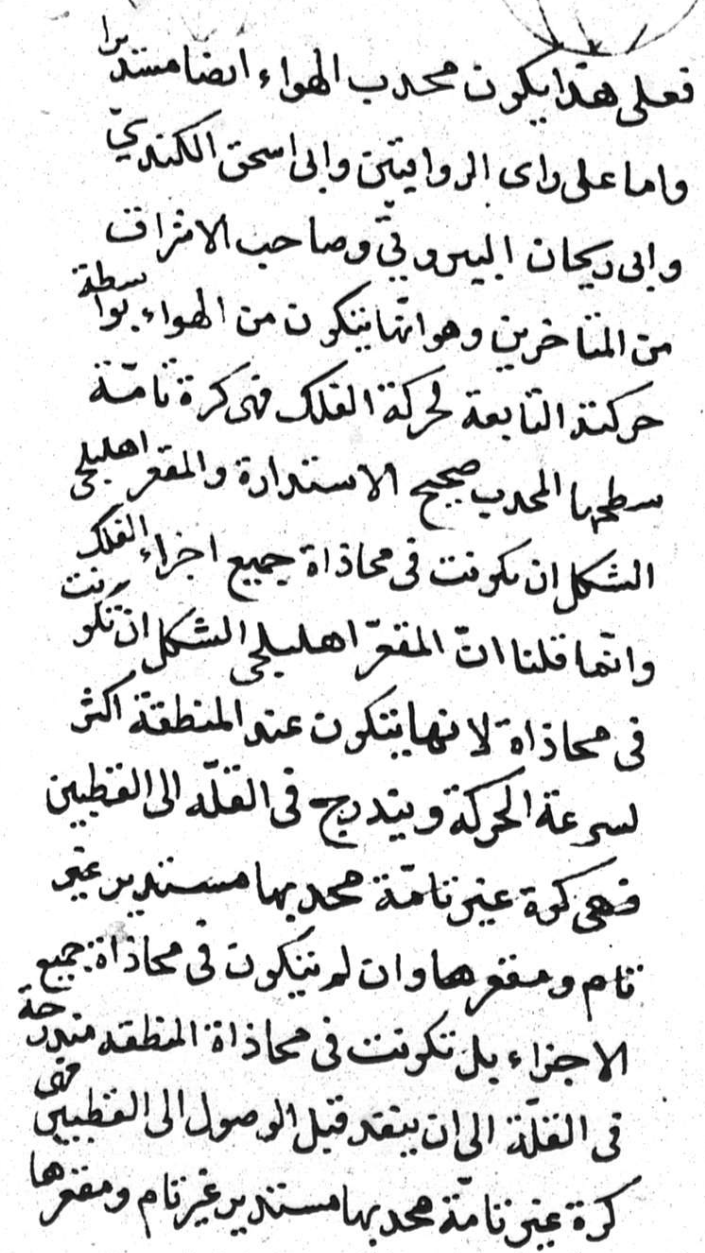 فعلى هذا يكون محدب الهواء ايضا مستديرا
واما على راى الرواقيين وابى اسحق الكندي
وابى ريحان البيروني وصاحب الاشراق
من المتاخرين وهو انها يتكون من الهواء بواسطة
حركته التابعة لحركة الفلك فهى كرة تامّة
سطحها المحدب صحيح الاستدارة والمقعر اهليلجى
الشكل ان تكونت فى محاذاة جميع اجزاء الفلك
وانّما قلنا انّ المقعّر اهليلجى الشكل ان تكونت
فى محاذاة لانها يتكون عند المنطقة اكثر
لسرعة الحركة ويتدرج فى القلّه الى القطبين
فهى كرة غير تامّة محدبها مستدير غير
تام ومقعرها وان لم يتكون فى محاذاة جميع
الاجزاء بل تكونت فى محاذاة المنطقه متدرجة
فى القلّة الى ان ينفد قبل الوصول الى القطبين فهى
كرة غير تامّة محدبها مستدير غير تام ومقعرها